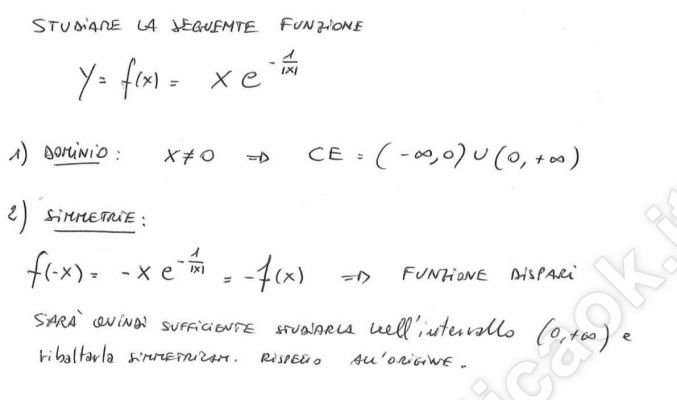 STUDIARE LA SEGUENTE FUNZIONE
Y = f(x) = x e^{-\frac{1}{|x|}}
1) DOMINIO : X≠0 ⇒ CE = (-∞,0) ∪ (0,+∞)
2) SIMMETRIE :
f(-x) = -x e^{-\frac{1}{|x|}} = -f(x) ⇒ FUNZIONE DISPARI
SARÀ QUINDI SUFFICIENTE STUDIARLA nell'intervallo (0,+∞) e
ribaltarla SIMMETRICAM. RISPETTO ALL'ORIGINE.
icaok.it